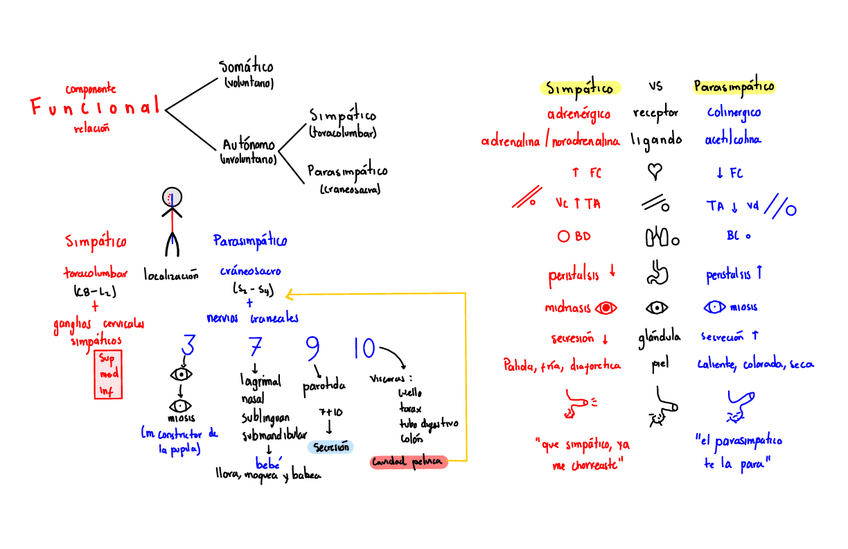 componente
Funcional
relación
Somático
(voluntario)
Autónomo
(involuntario)
Simpático
(toracolumbar)
Parasimpático
(craneosacra)
Simpático
toracolumbar
(C8-L2)
+
ganglios cervicales
simpáticos
Sup
med
inf
localización
Parasimpático
cráneosacro
(S2 - S4)
+
nervios craneales
3
7
9
10
miosis
(m constrictor de
la pupila)
lagrimal
nasal
sublingual
submandibular
bebé
llora, moquea y babea
parotida
7+10
secreción
visceras:
cuello
torax
tubo digestivo
colón
cavidad pelvica
Simpático vs Parasimpático
adrenérgico receptor colinergico
adrenalina / noradrenalina ligando acetilcolina
↑ FC ↓ FC
Vc ↑ TA TA ↓ vd
BD BC
peristalsis ↓ peristalsis ↑
midriasis miosis
secresión ↓ glándula secreción ↑
Palida, fría, diaforetica piel Caliente, colorada, seca
"que simpático, ya
me chorreaste"
"el parasimpatico
te la para"